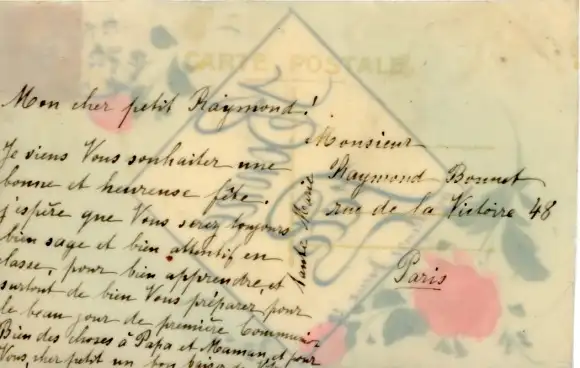 CARTE POSTALE
Mon cher petit Raymond!
Je viens Vous souhaiter une
bonne et heureuse fête.
j'espère que Vous serez toujours
bien sage et bien attentif en
classe, pour bien apprendre, et
surtout de bien Vous préparer pour
le beau jour de première Communi-
Bien des choses à Papa et Maman, et pour
Vous, cher petit un bon baiser de
Tante Marie
Monsieur
Raymond Bonnet
rue de la Victoire 48
Paris